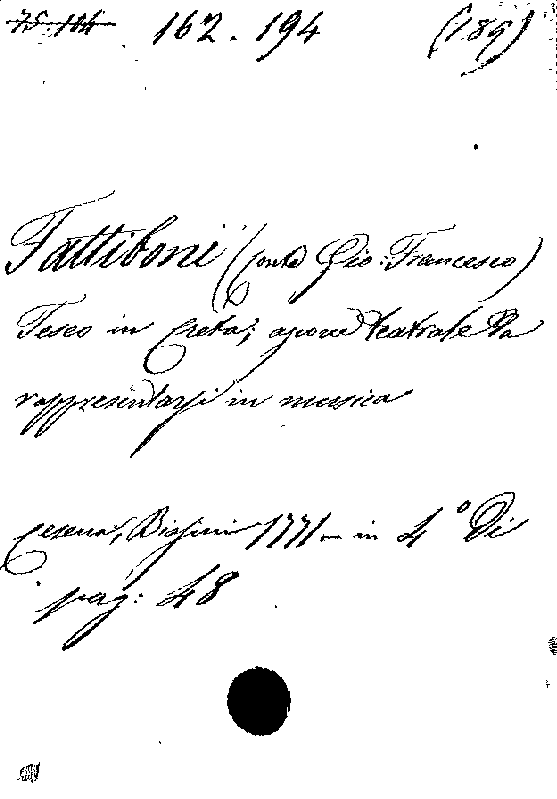 75.114 162.194 (189)
Fattiboni (Conte Gio: Francesco)
Teseo in Creta; azione teatrale da
rappresentarsi in musica
Cesena, Biasini 1771 - in 4º Di
pag: 48